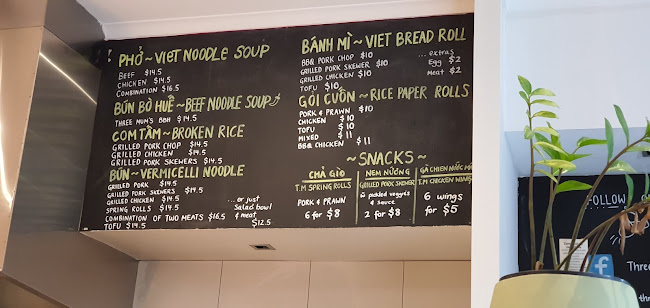 PHỞ ~ VIET NOODLE SOUP
BEEF $14.5
CHICKEN $14.5
COMBINATION $16.5
BÚN BÒ HUẾ ~ BEEF NOODLE SOUP
THREE MUM'S BBH $14.5
COM TẤM ~ BROKEN RICE
GRILLED PORK CHOP $14.5
GRILLED CHICKEN $14.5
GRILLED PORK SKEWERS $14.5
BÚN ~ VERMICELLI NOODLE
GRILLED PORK $14.5
GRILLED PORK SKEWERS $14.5
GRILLED CHICKEN $14.5
SPRING ROLLS $14.5
COMBINATION OF TWO MEATS $16.5
TOFU $14.5
... or just
Salad bowl
& meat
$12.5
BÁNH MÌ ~ VIET BREAD ROLL
BBQ PORK CHOP $10
GRILLED PORK SKEWER $10
GRILLED CHICKEN $10
TOFU $10
... extras
Egg $2
Meat $2
GỎI CUỐN ~ RICE PAPER ROLLS
PORK & PRAWN $10
CHICKEN $10
TOFU $10
MIXED $11
BBQ CHICKEN $11
~ SNACKS ~
CHẢ GIÒ
T.M SPRING ROLLS
PORK & PRAWN
6 for $8
NEM NƯỚNG
GRILLED PORK SKEWER
w pickled veggies
& sauce
2 for $8
GÀ CHIEN NƯỚC MẮM
T.M CHICKEN WINGS
6 wings
for $5
FOLLOW
f
Three